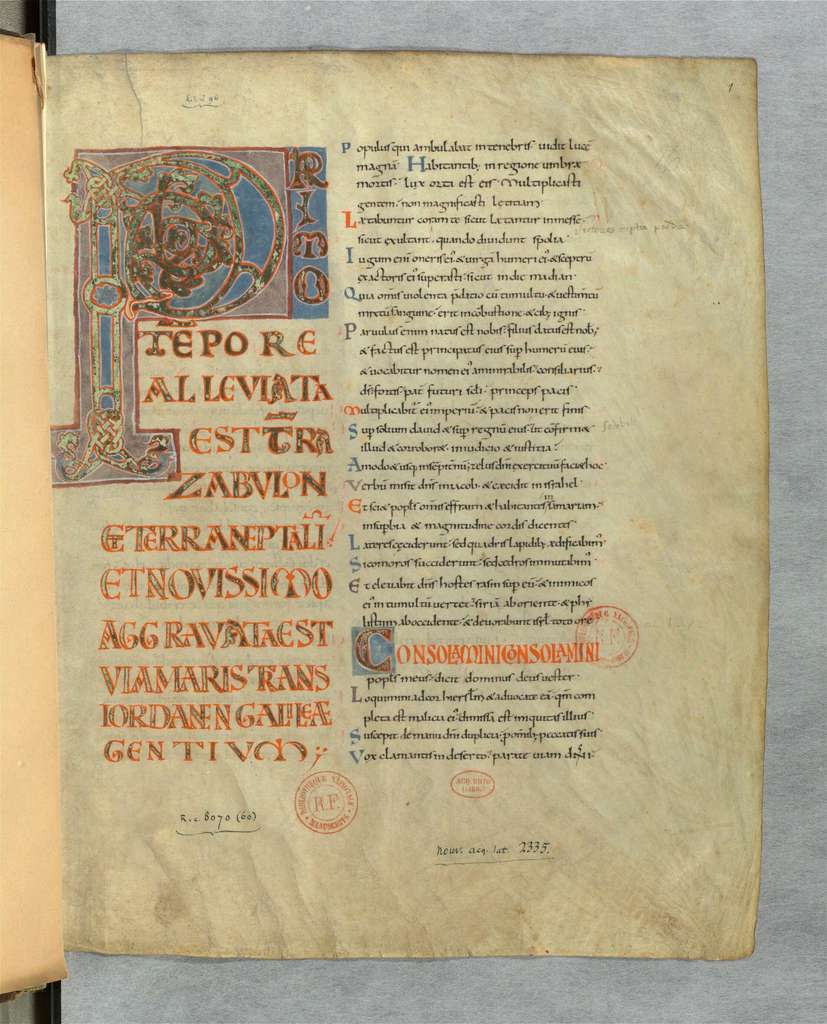 1
PRIMO
TĒPORE
ALLEVIATA
EST T̄RA
ZABVLON
ET TERRA NEPTALI
ET NOVISSIMO
AGGRAVATA EST
VIA MARIS TRANS
IORDANEN GALILEÆ
GENTIVM;
Populus qui ambulabat in tenebris uidit lucē
magnā Habitantib; in regione umbræ
mortis lux orta est eis Multiplicasti
gentem non magnificasti letitiam
Lætabuntur coram te sicut lætantur in messe
sicut exultant quando diuidunt spolia
Iugum eni oneris ei & uirgā humeri ei & sceptrū
exactoris ei superasti sicut in die madian
Quia omis uiolenta p̄datio cū tumultu & uestimtū
mixtū sanguine erit in cōbustione & cib; ignis
Paruulus enim natus est nobis filius datus est nob;
& factus est principatus eius sup humerū eius
& uocabitur nomen ei ammirabilis consiliarius
ds fortis pat futuri scli princeps pacis
Multiplicabit ei imperiū & pacis non erit finis
Sup solium dauid & sup regnū eius ut cōfirm&
illud & corrobor& in iudicio & iustitia
Amodo & usq; in sempitnū zelus dni exercituū faci& hoc
Verbū misit dns in iacob & cecidit in israhel
Et sci& popls omis effraim & habitantes samariam
in supbia & magnitudine cordis dicentes
Lateres ceciderunt sed quadris lapidib; ædificabim
Sicomoros succiderunt sed cedros inmutabim
Et eleuabit dns hostes rasin sup eū & inimicos
ei in tumultū uertet siriā ab oriente & phi
listiim ab occidente & deuorabunt isrl toto ore
CONSOLAMINI CONSOLAMINI
popls meus dicit dominus deus uester
Loquimini ad cor hierslm & aduocate eā qm com
pleta est malicia ei dimissa est iniquitas illius
Suscepit de manu dni duplicia p omib; peccatis suis
Vox clamantis in deserto parate uiam dni
BIBLIOTHÈQUE NATIONALE
R.F.
MANUSCRITS
R. c. 8070 (60)
Nouv. acq. lat. 2335.